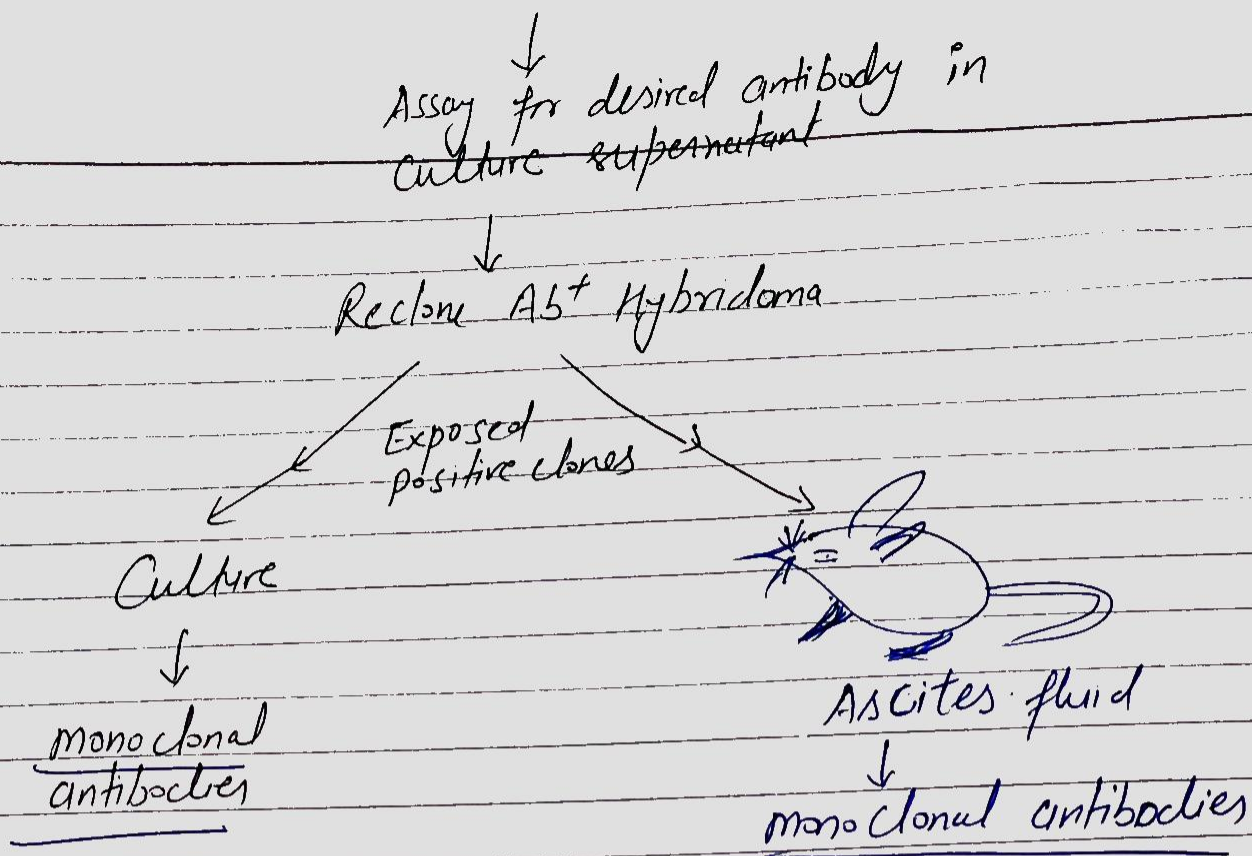 Assay for desired antibody in
culture supernatant
Reclone Ab⁺ Hybridoma
Exposed
positive clones
Culture
Ascites fluid
monoclonal
antibodies
monoclonal antibodies